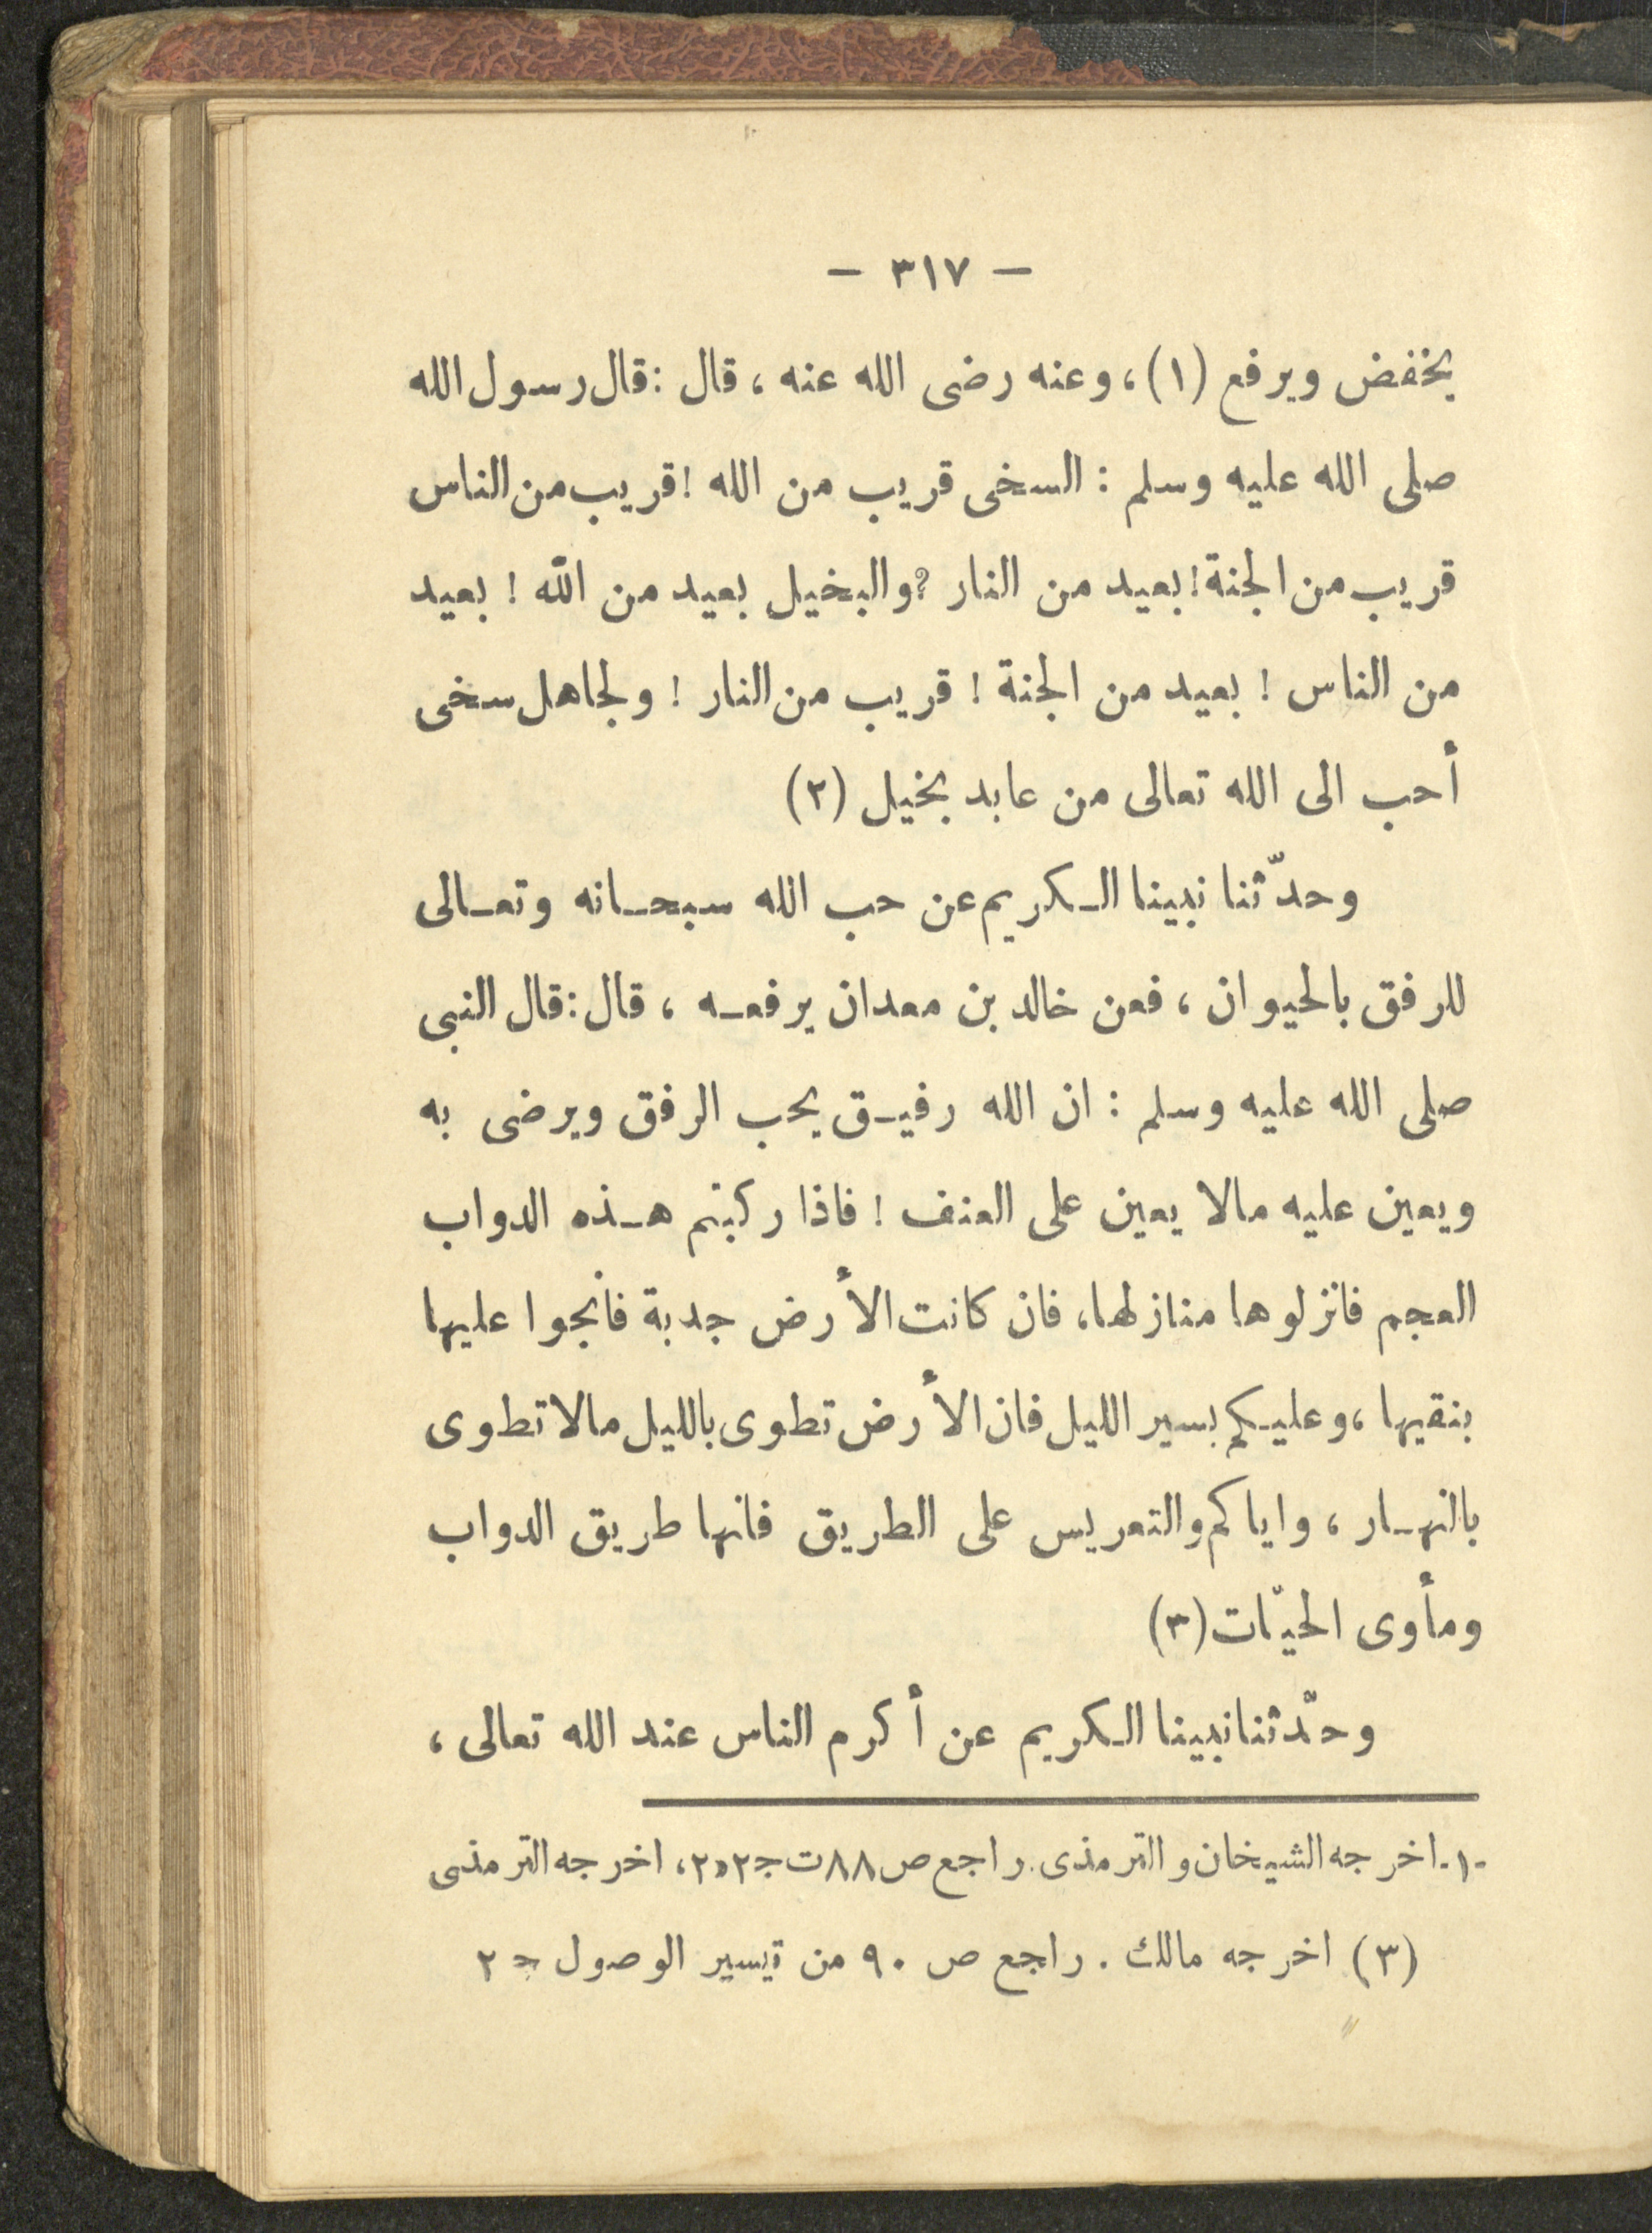 — ٣١٧ —
يخفض ويرفع (١)، وعنه رضى الله عنه ، قال : قال رسول الله
صلى الله عليه وسلم : السخى قريب من الله ! قريب من الناس
قريب من الجنة ! بعيد من النار ؟ والبخيل بعيد من الله ! بعيد
من الناس ! بعيد من الجنة ! قريب من النار ! ولجاهل سخى
أحب الى الله تعالى من عابد بخيل (٢)
وحدّثنا نبينا الـكريم عن حب الله سبحـانه وتعـالى
للرفق بالحيوان ، فعن خالد بن معدان يرفعـه ، قال : قال النبى
صلى الله عليه وسلم : ان الله رفيـق يحب الرفق ويرضى به
ويعين عليه مالا يعين على العنف ! فاذا ركبتم هـذه الدواب
العجم فانزلوها منازلها، فان كانت الأرض جدبة فانجوا عليها
بنقيها ، وعليـكم بسير الليل فان الأرض تطوى بالليل مالا تطوى
بالنهـار ، واياكم والتعريس على الطريق فانها طريق الدواب
ومأوى الحيّات (٣)
وحدّثنا نبينا الـكريم عن أكرم الناس عند الله تعالى ،
-١- اخرجه الشيخان والترمذى. راجع ص ٨٨ ت جـ ٢ و٢، اخرجه الترمذى
(٣) اخرجه مالك . راجع ص ٩٠ من تيسير الوصول جـ ٢